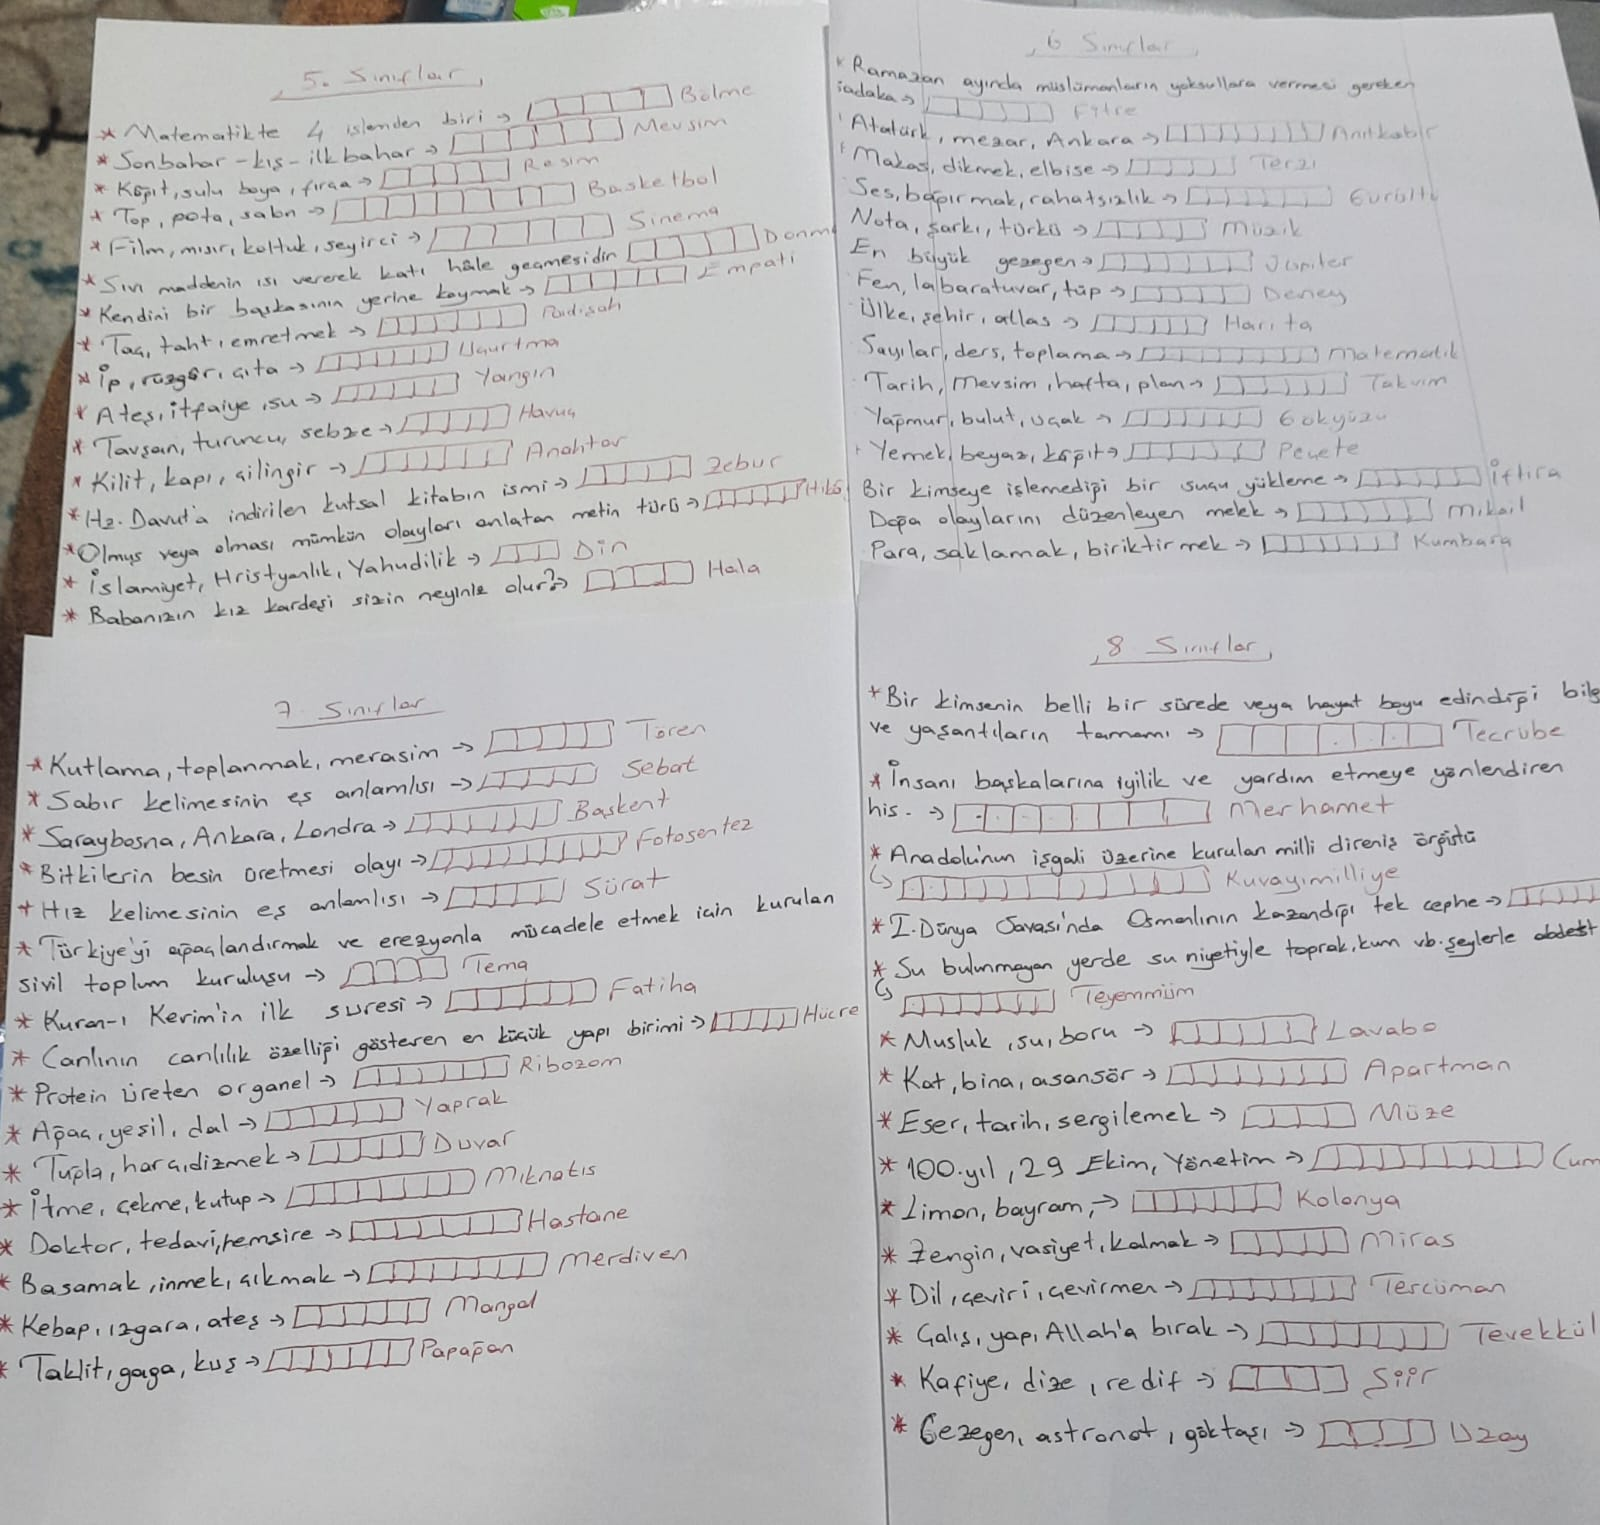 5. Sınıflar
* Matematikte 4 işlemden biri → Bölme
* Sonbahar - kış - ilkbahar → Mevsim
* Kağıt, sulu boya, fırça → Resim
* Top, pota, saha → Basketbol
* Film, mısır, koltuk, seyirci → Sinema
* Sıvı maddenin ısı vererek katı hâle geçmesidir Donm
* Kendini bir başkasının yerine koymak → Empati
* Taç, taht, emretmek → Padişah
* İp, rüzgâr, çıta → Uçurtma
* Ateş, itfaiye, su → Yangın
* Tavşan, turuncu, sebze → Havuç
* Kilit, kapı, çilingir → Anahtar
* Hz. Davut'a indirilen kutsal kitabın ismi → Zebur
* Olmuş veya olması mümkün olayları anlatan metin türü →
* İslamiyet, Hristyanlık, Yahudilik → Din
* Babanızın kız kardeşi sizin neyiniz olur? → Hala
6 Sınıflar
* Ramazan ayında müslümanların yoksullara vermesi gereken
sadaka → Fitre
Atatürk, mezar, Ankara → Anıtkabir
Makas, dikmek, elbise → Terzi
Ses, bağırmak, rahatsızlık → Gürültü
Nota, şarkı, türkü → Müzik
En büyük gezegen → Jüpiter
Fen, labaratuvar, tüp → Deney
Ülke, şehir, atlas → Harita
Sayılar, ders, toplama → Matematik
Tarih, Mevsim, hafta, plan → Takvim
Yağmur, bulut, uçak → Gökyüzü
Yemek, beyaz, kağıt → Peçete
Bir kimseye işlemediği bir suçu yükleme → İftira
Doğa olaylarını düzenleyen melek → Mikail
Para, saklamak, biriktirmek → Kumbara
7 Sınıflar
* Kutlama, toplanmak, merasim → Tören
* Sabır kelimesinin eş anlamlısı → Sebat
* Saraybosna, Ankara, Londra → Başkent
* Bitkilerin besin üretmesi olayı → Fotosentez
* Hız kelimesinin eş anlamlısı → Sürat
* Türkiye'yi ağaçlandırmak ve erezyonla mücadele etmek için kurulan
sivil toplum kuruluşu → Tema
* Kuran-ı Kerim'in ilk suresi → Fatiha
* Canlının canlılık özelliği gösteren en küçük yapı birimi → Hücre
* Protein üreten organel → Ribozom
* Ağaç, yeşil, dal → Yaprak
* Tuğla, harç, dizmek → Duvar
* İtme, çekme, kutup → Mıknatıs
* Doktor, tedavi, hemşire → Hastane
* Basamak, inmek, çıkmak → Merdiven
* Kebap, ızgara, ateş → Mangal
* Taklit, gaga, kuş → Papağan
8 Sınıflar
* Bir kimsenin belli bir sürede veya hayat boyu edindiği bilg
ve yaşantıların tamamı → Tecrübe
* İnsanı başkalarına iyilik ve yardım etmeye yönlendiren
his. → Merhamet
* Anadolu'nun işgali üzerine kurulan milli direniş örgütü
↳ Kuvayımilliye
* I. Dünya Savaşı'nda Osmanlının kazandığı tek cephe →
* Su bulunmayan yerde su niyetiyle toprak, kum vb. şeylerle abdest
↳ Teyemmüm
* Musluk, su, boru → Lavabo
* Kat, bina, asansör → Apartman
* Eser, tarih, sergilemek → Müze
* 100. yıl, 29 Ekim, Yönetim → Cum
* Limon, bayram, → Kolonya
* Zengin, vasiyet, kalmak → Miras
* Dil, çeviri, çevirmen → Tercüman
* Çalış, yap, Allah'a bırak → Tevekkül
* Kafiye, dize, redif → Şiir
* Gezegen, astronot, göktaşı → Uzay